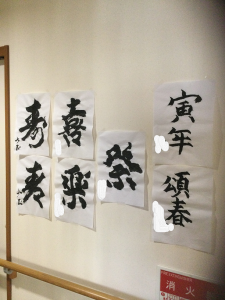 寅年
頌春
祭
喜
楽
寿
消火